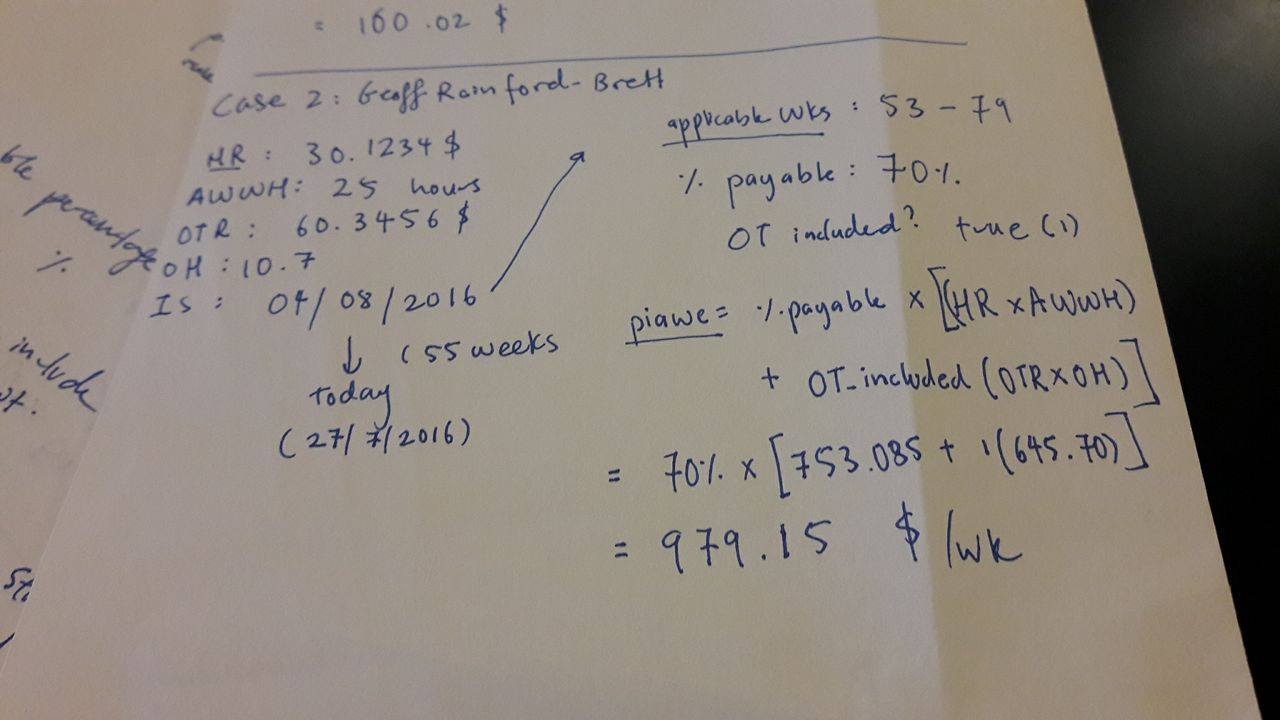 = 160.02 $
Case 2: Geoff Rainford-Brett
HR : 30.1234 $
AWWH: 25 hours
OTR : 60.3456 $
OH : 10.7
IS : 04/08/2016
↓ (55 weeks
today
(27/7/2016)
applicable wks : 53 - 79
% payable : 70%.
OT included? true (1)
piawe = % payable × [(HR × AWWH)
+ OT_included (OTR × OH)]
= 70% × [753.085 + 1(645.70)]
= 979.15 $ /wk
ble percentage
%
include
ot.